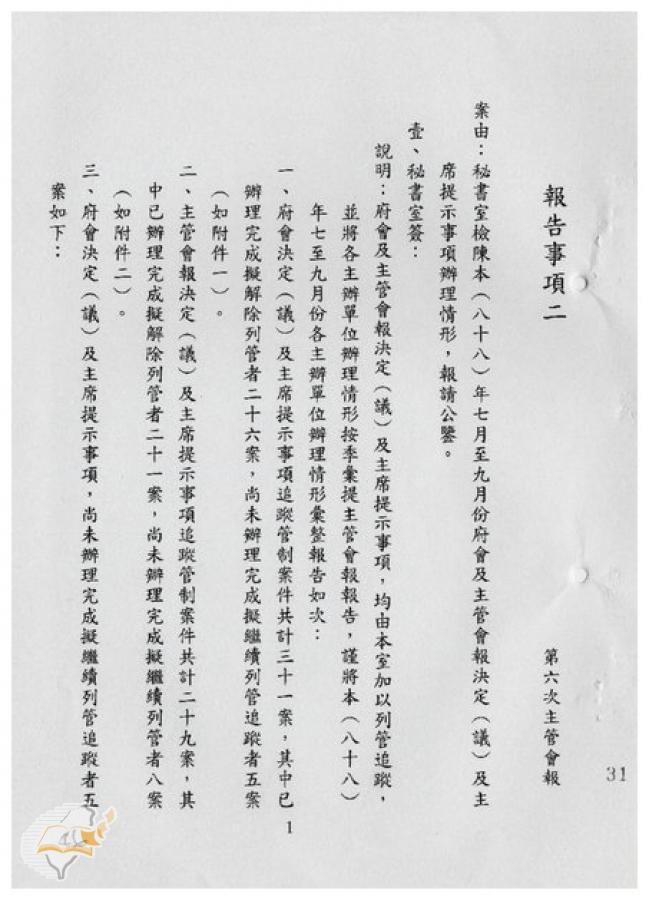 報告事項二
第六次主管會報
31
案由：秘書室檢陳本（八十八）年七月至九月份府會及主管會報決定（議）及主
席提示事項辦理情形，報請公鑒。
壹、秘書室簽：
說明：府會及主管會報決定（議）及主席提示事項，均由本室加以列管追蹤，
並將各主辦單位辦理情形按季彙提主管會報報告，謹將本（八十八）
年七至九月份各主辦單位辦理情形彙整報告如次：
一、府會決定（議）及主席提示事項追蹤管制案件共計三十一案，其中已
辦理完成擬解除列管者二十六案，尚未辦理完成擬繼續列管追蹤者五案
（如附件一）。
二、主管會報決定（議）及主席提示事項追蹤管制案件共計二十九案，其
中已辦理完成擬解除列管者二十一案，尚未辦理完成擬繼續列管者八案
（如附件二）。
三、府會決定（議）及主席提示事項，尚未辦理完成擬繼續列管追蹤者五
案如下：
1